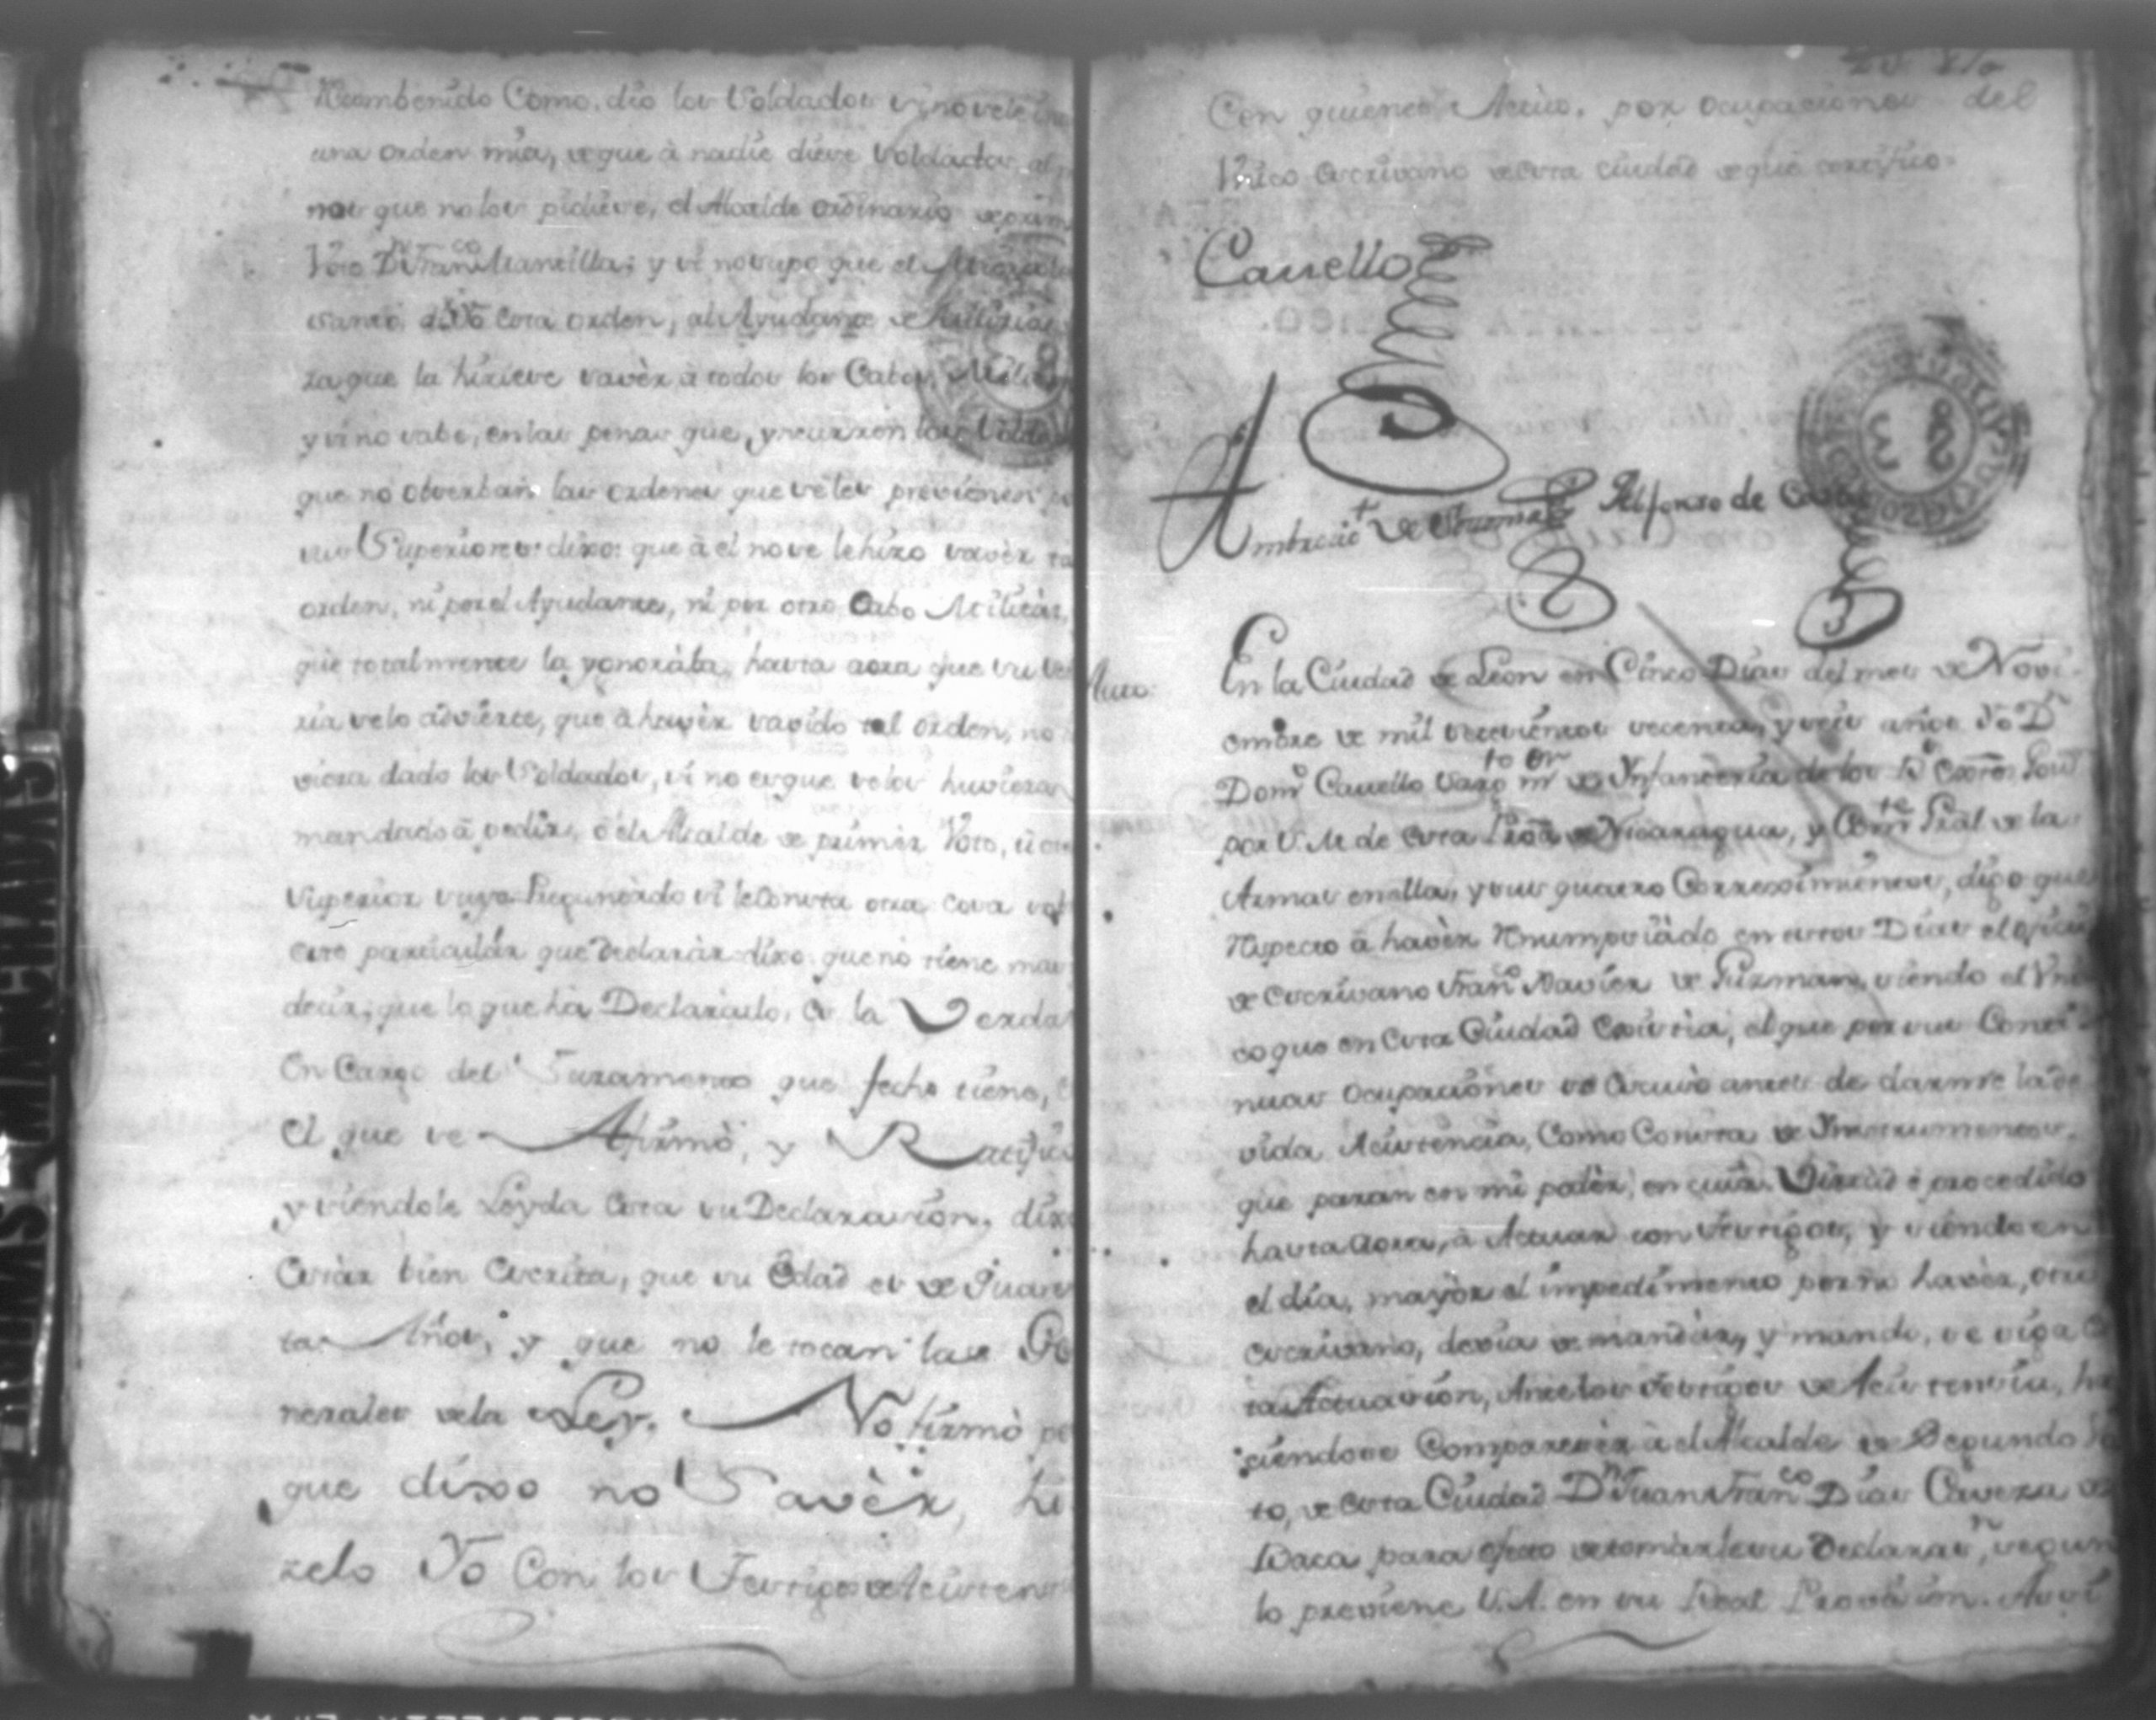 Recombenido Como dio los Soldados si no se le
una orden mia, de que à nadie diese Soldados al
nos que no los pidiese, el Alcalde ordinario de prim
Voto Dn Franco Mansilla; y si no supo que el Sargento
dió esta orden, al Ayudante de Milicias
ra que la hiziese savèr à todos los Cabos Militares
y si no sabe, en las penas que, yncurren los Solda
que no observan las ordenes que se les previenen
sus Superiores: dixo: que à el no se le hizo savèr ta
orden, ni por el Ayudante, ni por otro Cabo Militàr,
que totalmente la ygnoràba, hasta aora que su
ria se lo advierte, que à havèr savido tal orden, no
viera dado los Soldados, si no es que se los huvieran
mandado à pedir, ó el Alcalde de primèr Voto, ù otro
Superior suyo. Preguntado si le Consta otra cosa sob
este particulàr que Declaràr dixo: que no tiene mas
decir; que lo que hà Declarado, es la Verda
En Cargo del Juramento que fecho tiene,
El que se Afirmò, y Ratificò
y siendole Leyda esta su Declarasion, dixo
Estàr bien Escrita, que su Edad es de Quaren
ta Años, y que no le tocan las Ge
nerales de la Ley. No firmò po
que dixo no Savèr, hi
zelo Yo Con los Testigos de Asisten
Con quienes Actuo. por ocupaciones del
Unico Escrivano de esta ciudad de que certifico
Cavello
Ambrocio de Alfonso de
Auto. En la Ciudad de Leon en Cinco Dias del mes de Novi
embre de mil setecientos secenta, y seis años Yo Dn
Domo Cavello Sargto mor de Infanteria de los Rs Extos Govr
por S. M. de esta Proa de Nicaragua, y Comte Gral de la
Armas en ella, y sus quatro Corregimientos, digo que
Respecto à havèr Renumpsiàdo en estos Dias el ofici
de Escrivano Frano Xavier de Guzman, siendo el Vni
co que en Esta Ciudad Existia, el que por sus Conti
nuas Ocupaciones se Escusò antes de darme la de
vida Asistencia, Como Consta de Ynstrumentos
que paran en mi podèr, en cuia Virtud è procedido
hasta aora, à Actuar con Testigos, y siendo en
el dia, mayòr el impedimento por no havèr, otro
escrivano, devia de mandàr, y mandè, se siga Es
ta Actuasion, Ante los Testigos de Asistensia, ha
ciendose Comparesèr à el Alcalde de Segundo Vo
to, de esta Ciudad Dn Juan Franco Dias Caveza de
Baca para efecto de tomàrle su Declarasn, segun
lo previene S. A. en su Real Provision. Assi